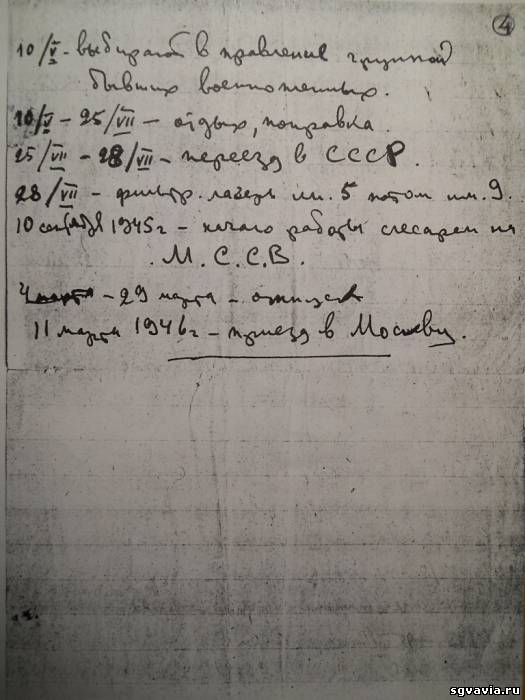 ④
10/V - выбирают в правление группой
бывших военнопленных.
10/V - 25/VII - отдых, поправка.
25/VII - 28/VII - переезд в СССР.
28/VII - фильтр. лагерь №. 5 потом №. 9.
10 сентября 1945 г - начало работы слесарем на
М. С. С. В.
- 29 марта - отпуск
11 марта 1946 г - приезд в Москву.
sgvavia.ru